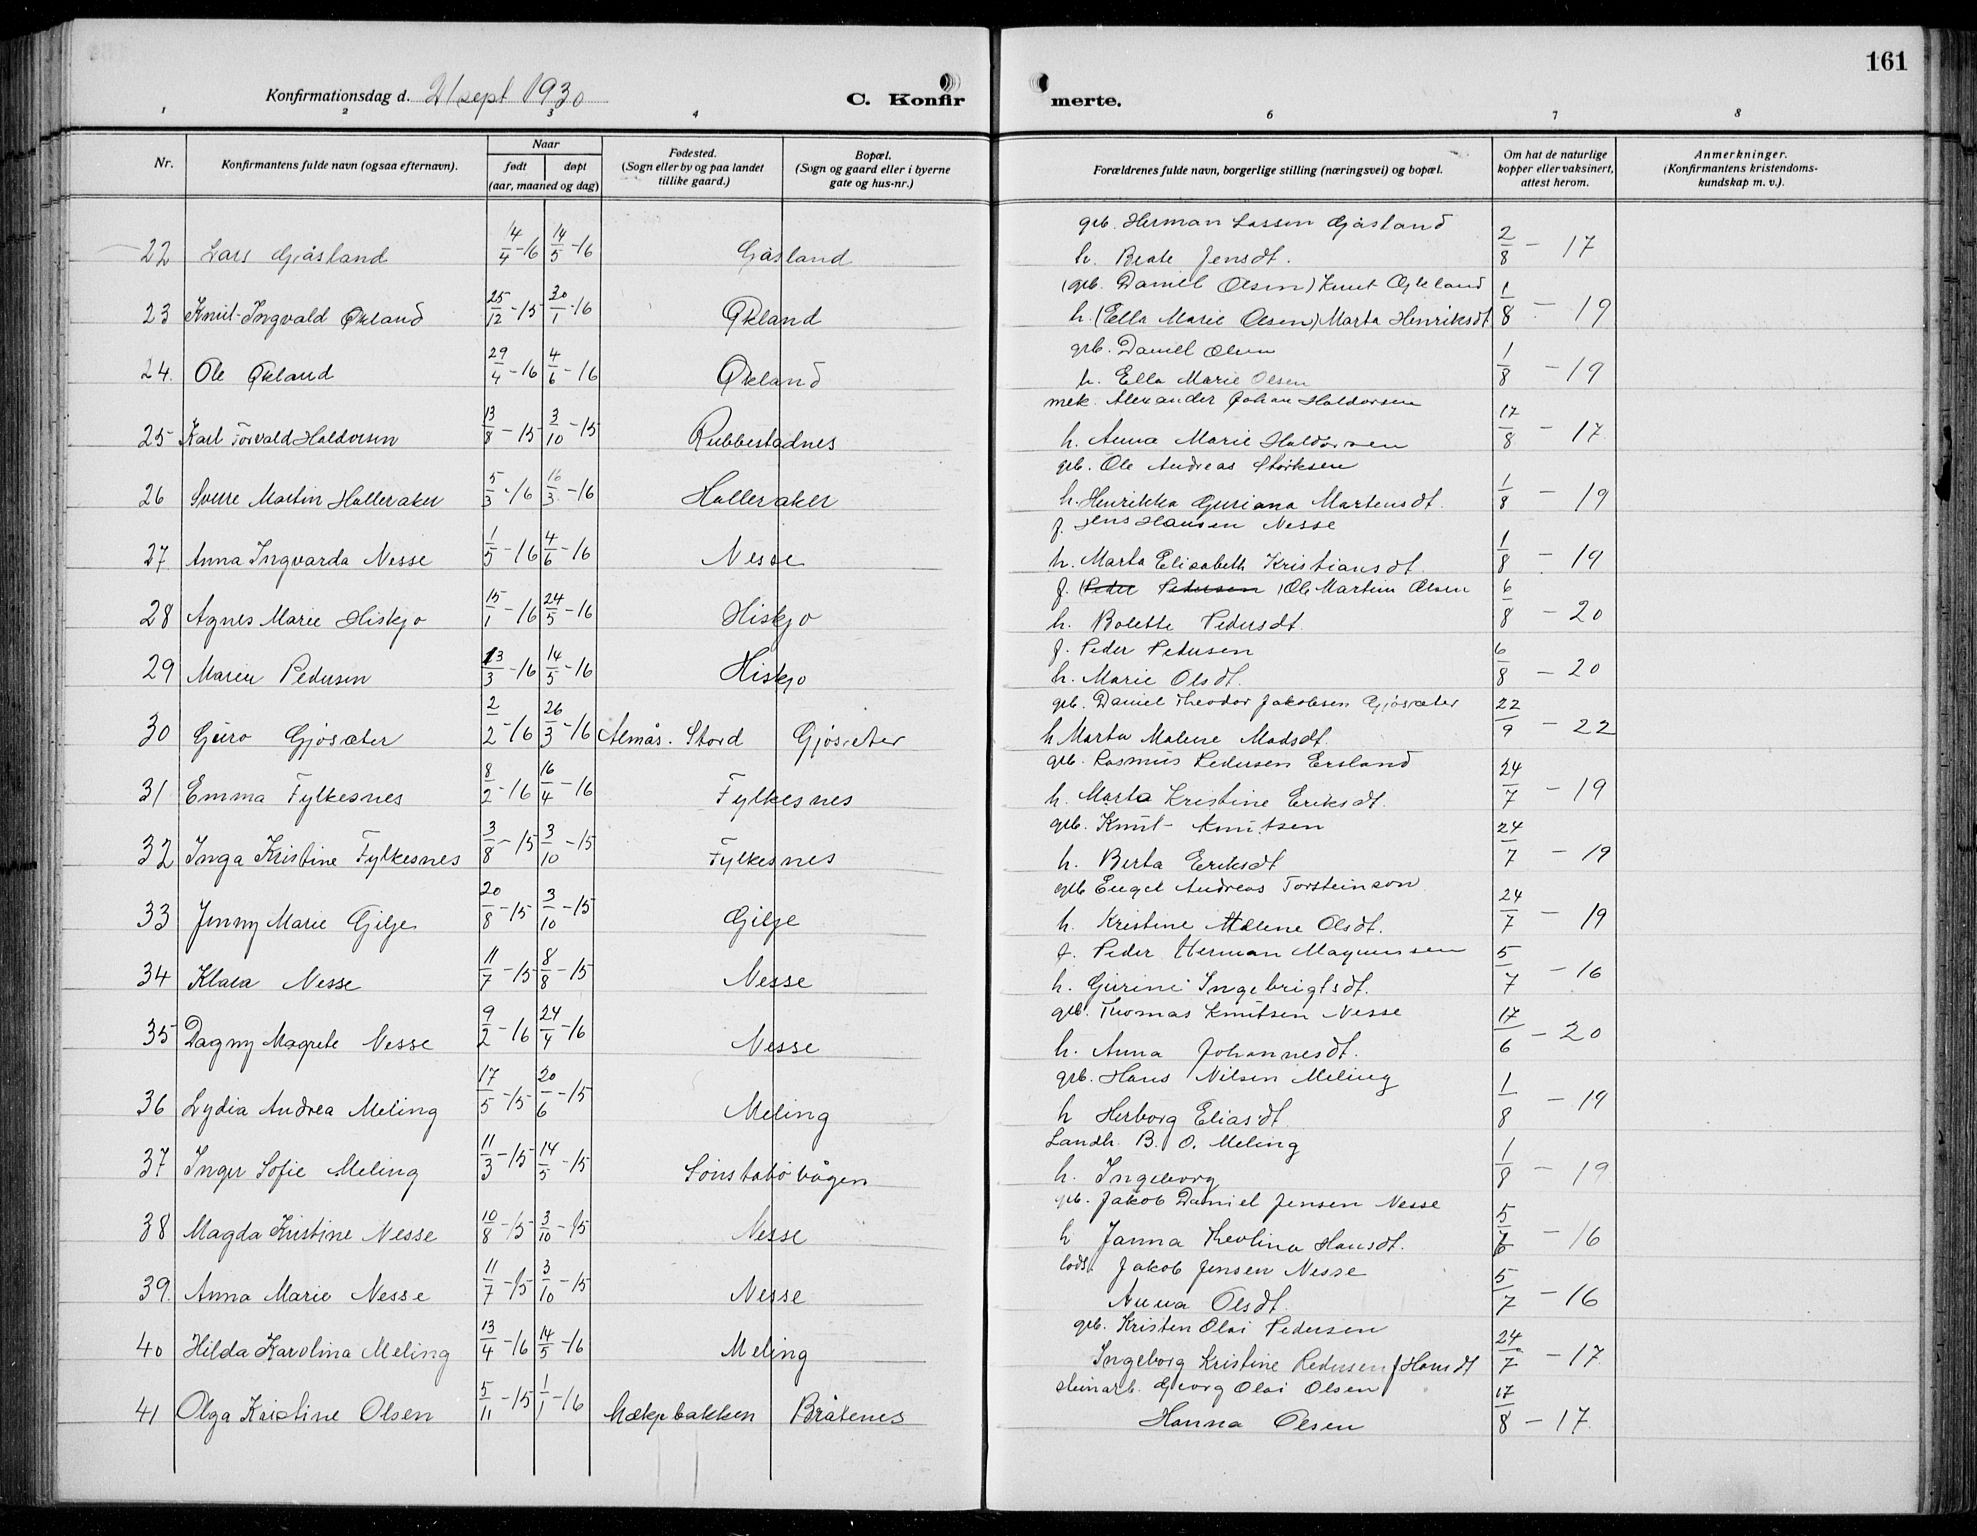 161
Konfirmationsdag d. 21 sept 1930
C. Konfirmerte.
1 2 3 4 6 7 8
Nr.
Konfirmantens fulde navn (ogsaa efternavn).
Naar
født
døpt
(aar, maaned og dag)
Fødested.
(Sogn eller by og paa landet
tillike gaard.)
Bopæl.
(Sogn og gaard eller i byerne
gate og hus-nr.)
Forældrenes fulde navn, borgerlige stilling (næringsvei) og bopæl.
Om hat de naturlige
kopper eller vaksinert,
attest herom.
Anmerkninger.
(Konfirmantens kristendoms-
kundskap m. v.).
grb. Herman Lassen Gåsland
22 Lars Gåsland 14/4-16 14/5-16 Gåsland h. Beate Jensdt. 2/8 - 17
(grb. Daniel Olsen) Knut Økland
23 Knut Ingvald Økland 25/12-15 30/1-16 Økland h. (Ella Marie Olsen) Marta Henriksdt 1/8 - 19
grb. Daniel Olsen
24. Ole Økland 29/4-16 4/6-16 Økland h. Ella Marie Olsen 1/8 - 19
mek. Alexander Johan Haldorsen
25 Karl Torvald Haldorsen 13/8-15 3/10-15 Rubbestadnes h. Anna Marie Haldorsen 17/8 - 17
grb. Ole Andreas Størksen
26 Sverre Martin Halleraker 5/3-16 16/3-16 Halleraker h. Henrikka Guriana Martensdt. 1/8 - 19
f. Jens Hansen Nesse
27. Anna Ingvarda Nesse 1/5-16 4/6-16 Nesse h. Marta Elisabeth Kristiansdt. 1/8 - 19
f. (Peder Pedersen) Ole Martin Olsen
28 Agnes Marie Hiskjo 15/1-16 24/5-16 Hiskjo h. Bolette Pedersdt. 6/8 - 20
f. Peder Pedersen
29 Maren Pedersen 13/3-16 14/5-16 Hiskjo h. Marie Olsdt. 6/8 - 20
grb. Daniel Theodor Jakobsen Gjøsæter
30 Guro Gjøsæter 2/2-16 26/3-16 Almås. Stord Gjøsæter h Marta Malene Madsdt. 22/9 - 22
grb. Rasmus Pedersen Ersland
31 Emma Fylkesnes 8/2-16 16/4-16 Fylkesnes h. Marta Kristine Eriksdt. 24/7 - 19
grb. Knut Knutsen
32 Inga Kristine Fylkesnes 3/8-15 3/10-15 Fylkesnes h. Berta Eriksdt 24/7 - 19
grb Engel Andreas Torsteinson
33 Jenny Marie Gilje 20/8-15 3/10-15 Gilje h. Kristine Malene Olsdt. 24/7 - 19
f. Peder Herman Magnussen
34 Klara Nesse 11/7-15 8/8-15 Nesse h. Gurine Ingebrigtsdt. 5/7 - 16
grb. Thomas Knutsen Nesse
35 Dagny Magrete Nesse 9/2-16 24/4-16 Nesse h. Anna Johannesdt. 17/6 - 20
grb. Hans Nilsen Meling
36 Lydia Andrea Meling 17/5-15 20/6-15 Meling h Herborg Eliasdt. 1/8 - 19
Landh. B. O. Meling
37 Inger Sofie Meling 11/3-15 14/5-15 Sønstabøvågen h. Ingeborg 1/8 - 19
grb. Jakob Daniel Jensen Nesse
38 Magda Kristine Nesse 10/8-15 3/10-15 Nesse h Janna Theolina Hansdt. 5/7 - 16
lods. Jakob Jensen Nesse
39. Anna Marie Nesse 11/7-15 3/10-15 Nesse Anna Olsdt. 5/7 - 16
grb. Kristen Olai Pedersen
40 Hilda Karolina Meling 13/4-16 14/5-16 Meling Ingeborg Kristine Pedersen f Hansdt 24/7 - 17
steinarb. Georg Olai Olsen
41 Olga Kristine Olsen 5/11-15 1/1-16 Bråtenes Hanna Olsen 17/8 - 17.